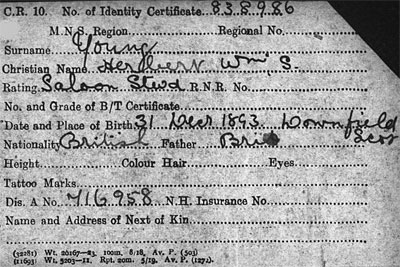 C.R. 10. No. of Identity Certificate 838986
M.N.S. Region Regional No.
Surname Young
Christian Name Herbert Wm S.
Rating Saloon Stwd R.N.R. No.
No. and Grade of B/T Certificate
Date and Place of Birth 31 Decr 1893 Downfield
Scot
Nationality British Father Brit
Height Colour Hair Eyes
Tattoo Marks
Dis. A No. 716958 N.H. Insurance No.
Name and Address of Next of Kin
(32281) Wt. 26167—23. 100m. 8/18. Av. P. (503)
(11693) Wt. 5203—11. Rpt. 20m. 5/19. Av. P. (1272).